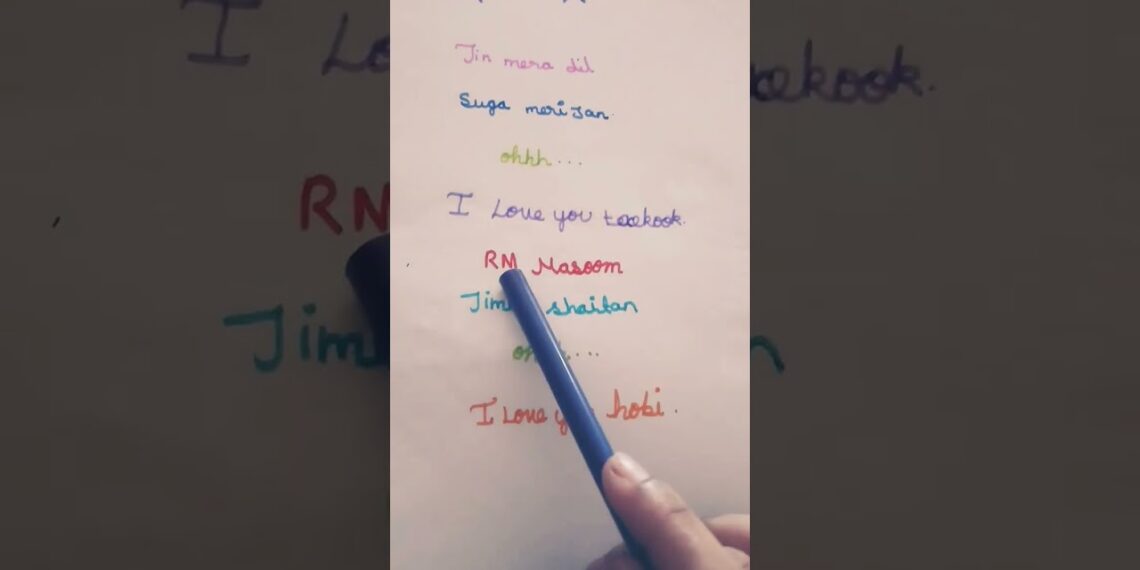 Jin mera dil
Suga meri Jan
ohhh...
I Love you taekook.
RM Masoom
shaitan
I Love hobi.